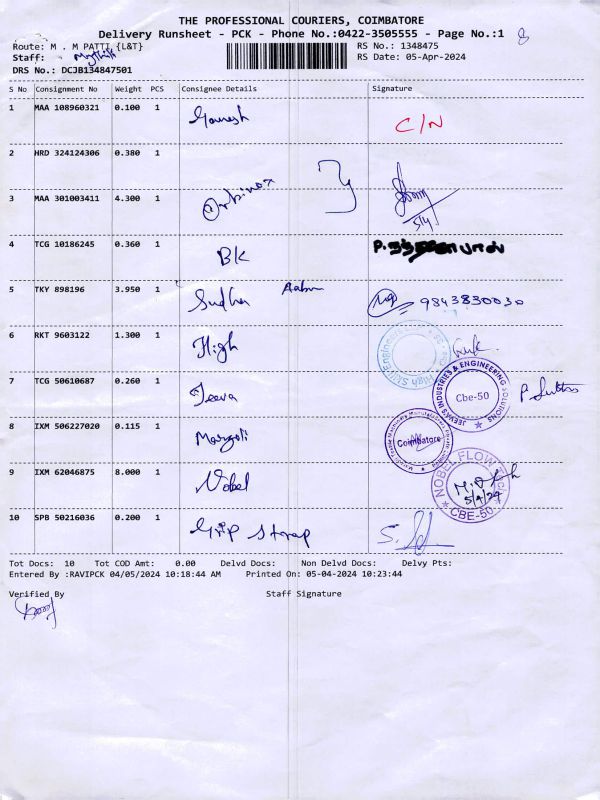 THE PROFESSIONAL COURIERS, COIMBATORE
Delivery Runsheet - PCK - Phone No.:0422-3505555 - Page No.:1 8
Route: M . M PATTI {L&T} RS No.: 1348475
Staff: RS Date: 05-Apr-2024
DRS No.: DCJB134847501
S No Consignment No Weight PCS Consignee Details Signature
1 MAA 108960321 0.100 1 Ganesh C/N
2 HRD 324124306 0.380 1
3 MAA 301003411 4.300 1 5/4
4 TCG 10186245 0.360 1 BK
5 TKY 898196 3.950 1 Sudha 9843830030
6 RKT 9603122 1.300 1 High
7 TCG 50610687 0.260 1 Jeeva JEEWA'S INDUSTRIES & ENGINEERING SOLUTIONS Cbe-50
8 IXM 506227020 0.115 1 Coimbatore
9 IXM 62046875 8.000 1 Nobel NOBEL FLOW CBE-50 5/4/24
10 SPB 50216036 0.200 1 Grip Strap
Tot Docs: 10 Tot COD Amt: 0.00 Delvd Docs: Non Delvd Docs: Delvy Pts:
Entered By :RAVIPCK 04/05/2024 10:18:44 AM Printed On: 05-04-2024 10:23:44
Verified By Staff Signature